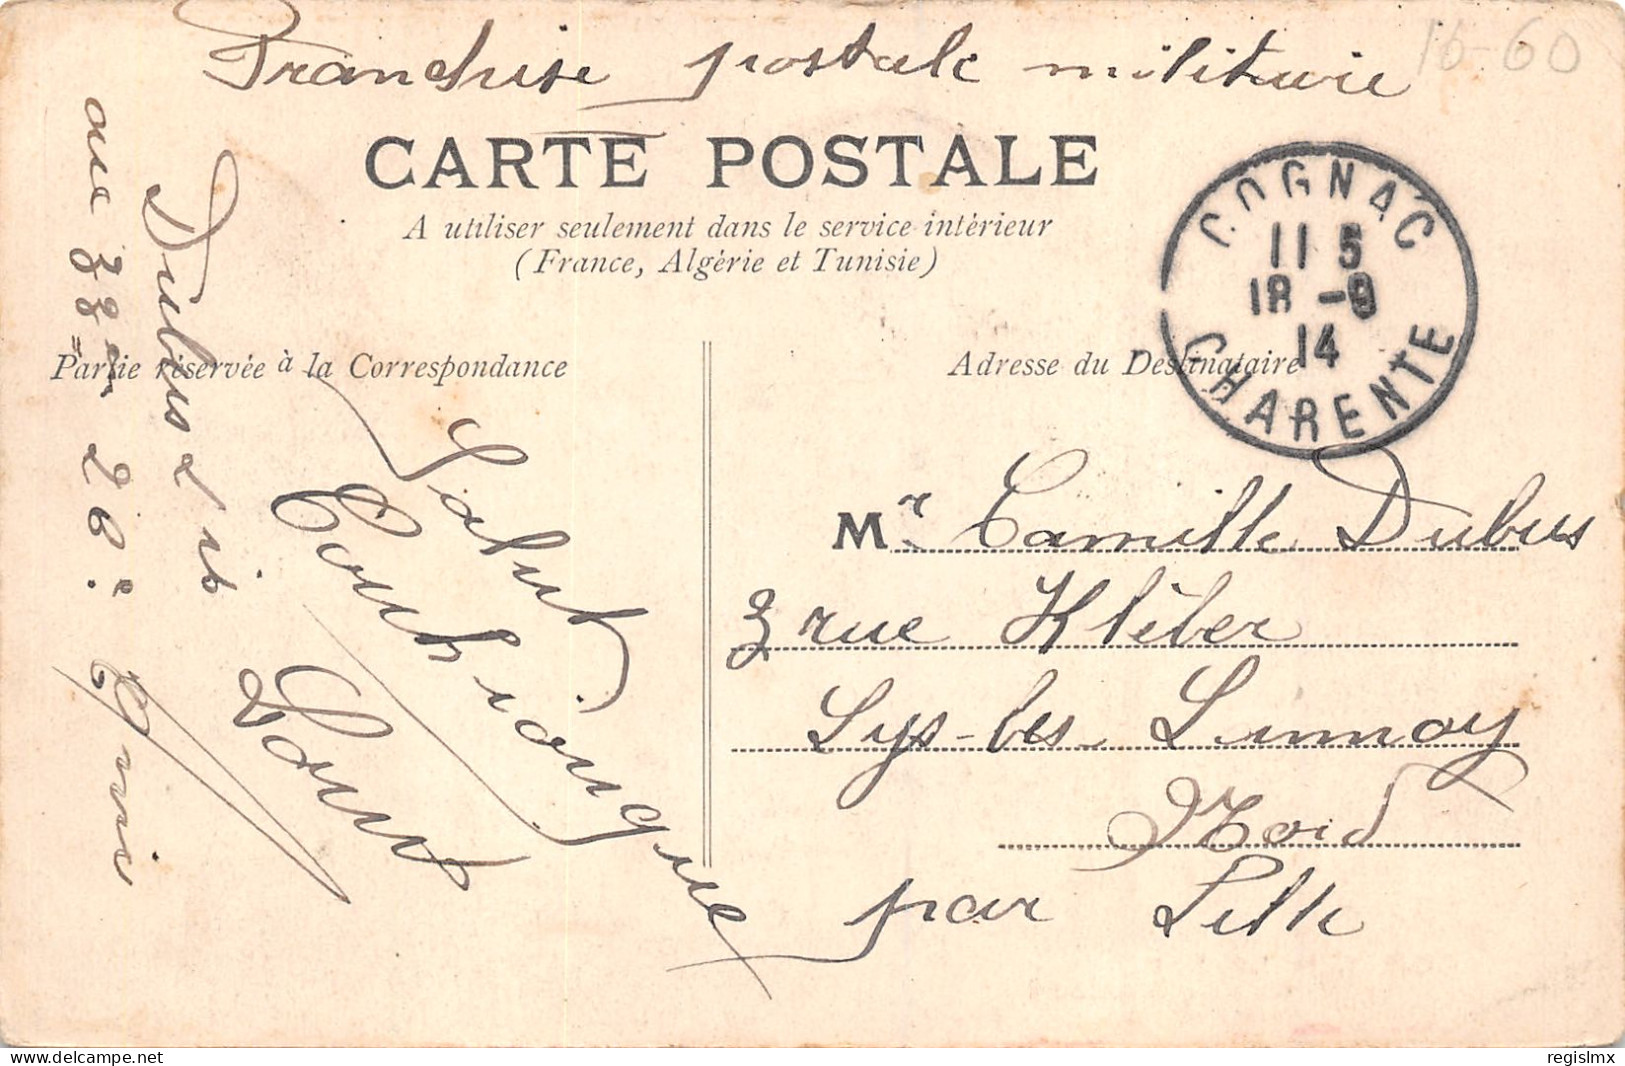 Franchise postale militaire
16-60
CARTE POSTALE
A utiliser seulement dans le service intérieur
(France, Algérie et Tunisie)
COGNAC
11 5
18 -9
14
CHARENTE
Partie réservée à la Correspondance
Adresse du Destinataire
Mr Camille Dubus
3 rue Kléber
Lys-les Lannoy
Nord
par Lille
Salut
Dubus
au
20e Cnie
regislmx
www.delcampe.net